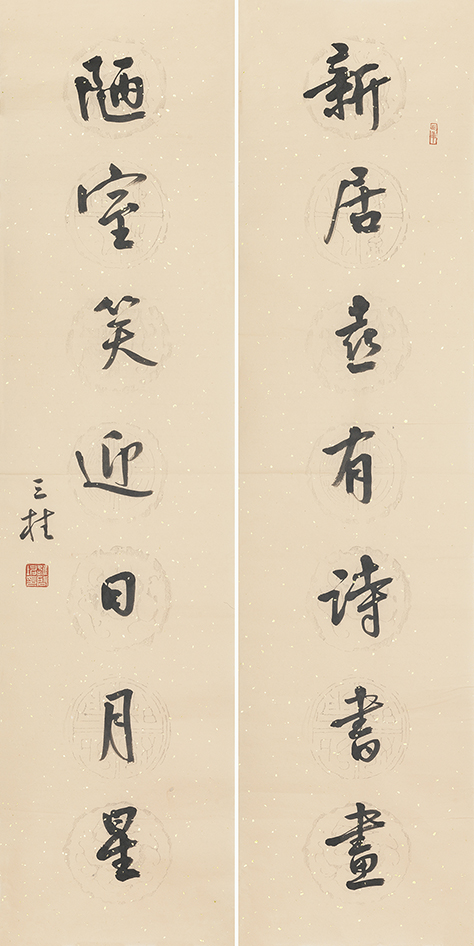 新居有詩書畫
陋室笑迎日月星
三桂